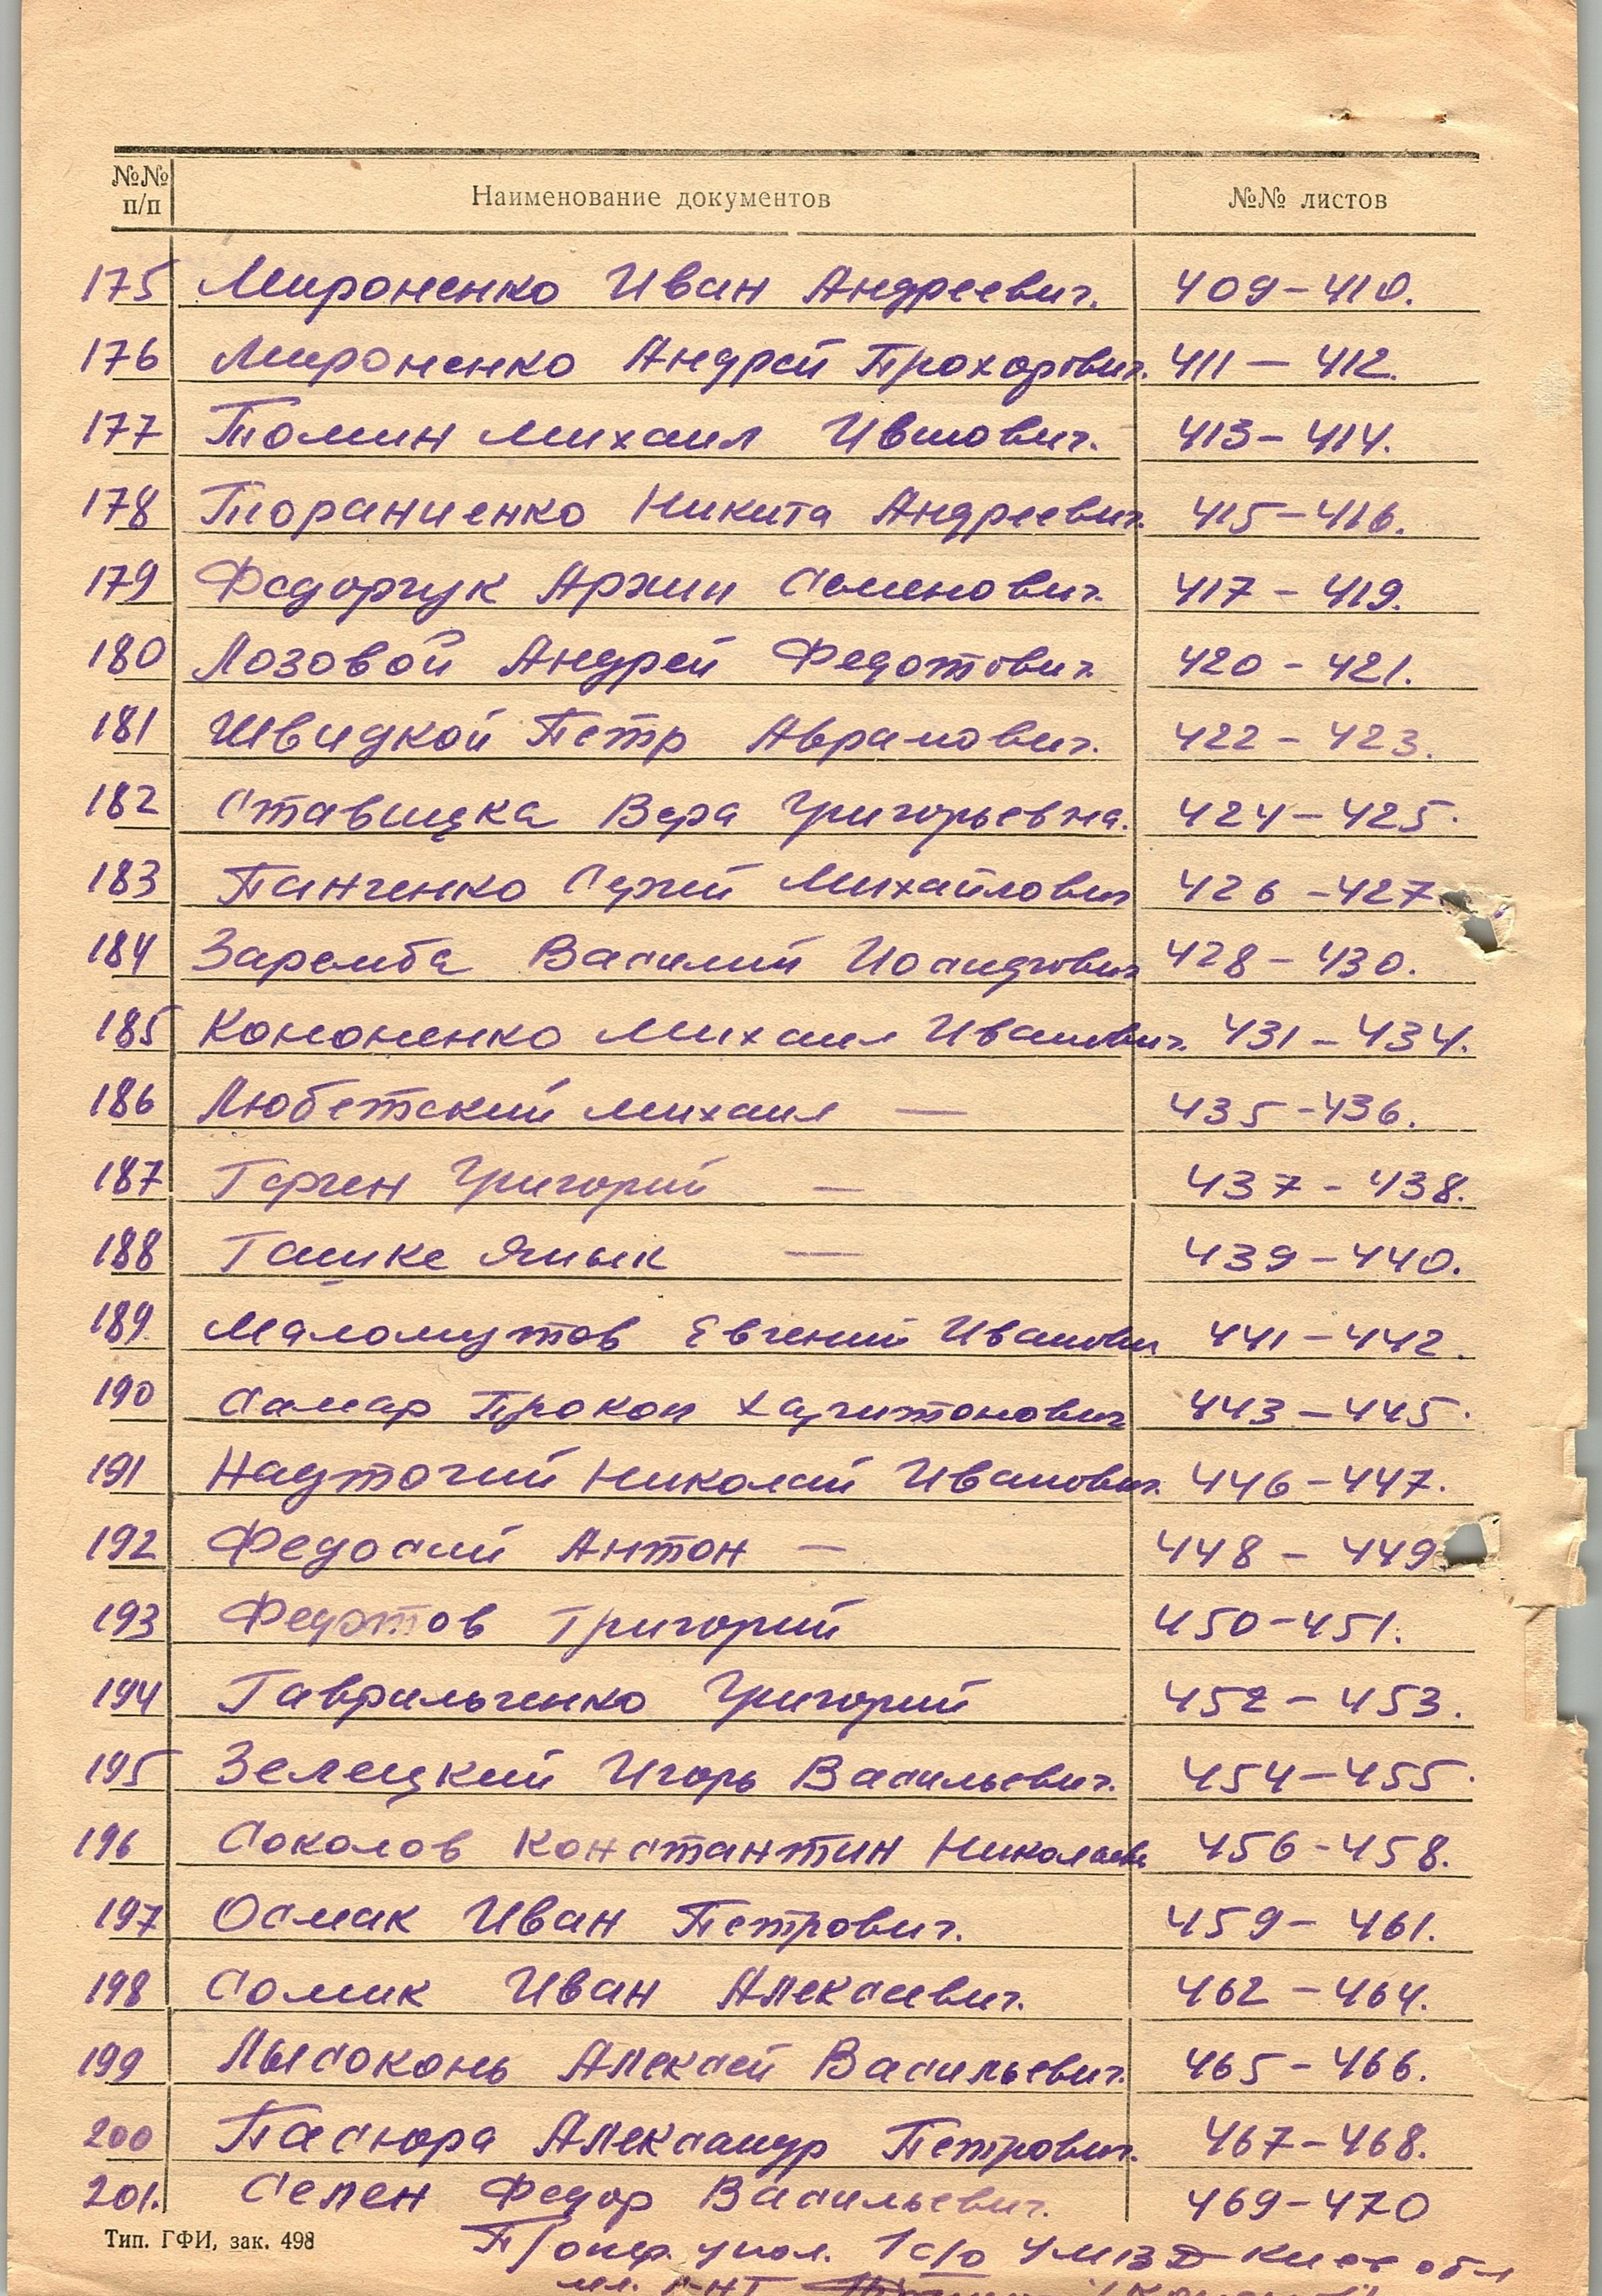 №№ п/п Наименование документов №№ листов
175 Мироненко Иван Андреевич. 409-410.
176 Мироненко Андрей Прохорович. 411 - 412.
177 Томин Михаил Иванович. 413-414.
178 Тораниенко Никита Андреевич. 415-416.
179 Федорчук Архип Семенович. 417 - 419.
180 Лозовой Андрей Федотович. 420 - 421.
181 Швидкой Петр Аврамович. 422 - 423.
182 Ставицка Вера Григорьевна. 424-425.
183 Панченко Сергей Михайлович 426 -427
184 Заремба Василий 428 - 430.
185 Кононенко Михаил Иванович. 431 - 434.
186 Любетский Михаил — 435 -436.
187 Герген Григорий — 437 - 438.
188 — 439 - 440.
189 Маломутов Евгений Иванович 441 - 442.
190 Самар Прокоп Харитонович 443 - 445.
191 Надточий Николай Иванович. 446-447.
192 Федосий Антон — 448 - 449
193 Федотов Григорий 450-451.
194 Гаврильченко Григорий 452 - 453.
195 Зелецкий Игорь Васильевич. 454-455.
196 Соколов Константин Николаев 456-458.
197 Осмак Иван Петрович. 459 - 461.
198 Сомик Иван Алексеевич. 462 - 464.
199 Лысоконь Алексей Васильевич. 465 - 466.
200 Пасюра Александр Петрович. 467-468.
201. Селен Федор Васильевич. 469-470
Тип. ГФИ, зак. 498
П/опер. упол. 1 с/о УМВД Киев обл
мл. л-нт